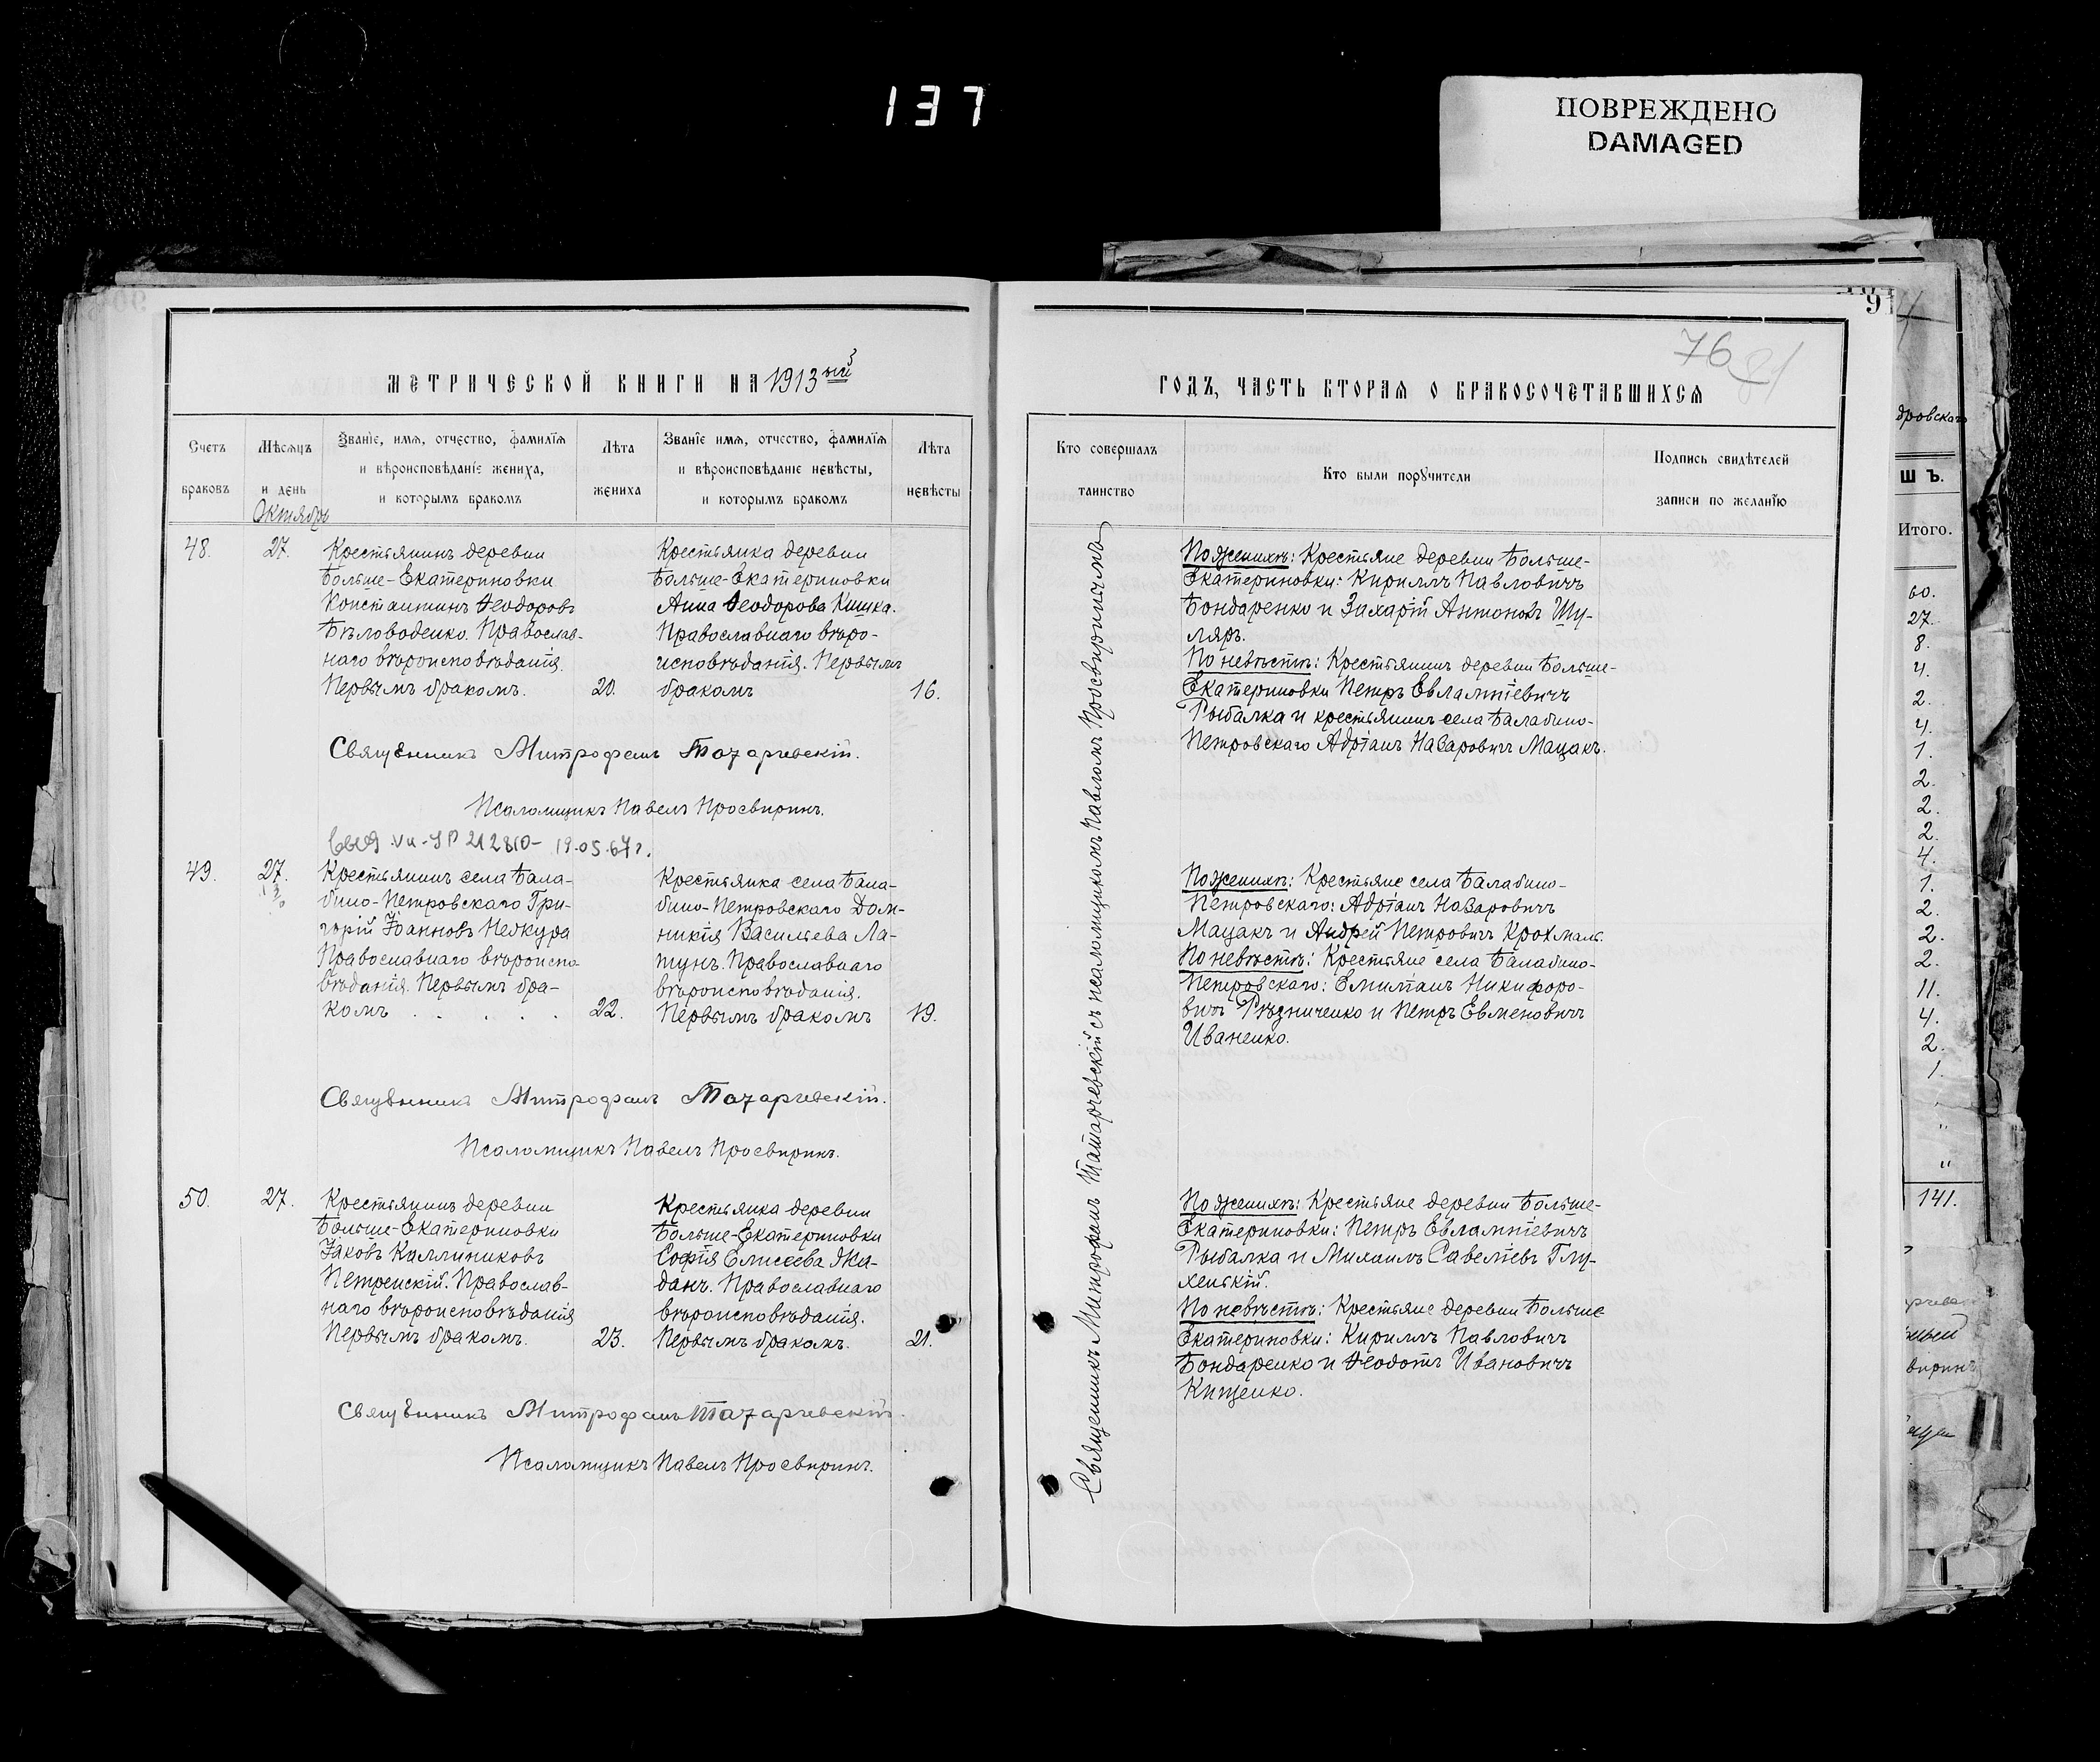 137
ПОВРЕЖДЕНО
DAMAGED
91
76
81
МЕТРИЧЕСКОЙ КНИГИ НА 1913 ый
Счетъ браковъ
Мѣсяцъ и день
Октябрь
Званіе, имя, отчество, фамилія
и вѣроисповѣданіе жениха,
и которымъ бракомъ
Лѣта жениха
Званіе имя, отчество, фамилія
и вѣроисповѣданіе невѣсты,
и которымъ бракомъ
Лѣта невѣсты
48.
27.
Крестьянинъ деревни
Больше-Екатериновки
Константинъ Ѳеодоровъ
Бѣловоденко. Православ-
наго вѣроисповѣданія.
Первымъ бракомъ.
20.
Крестьянка деревни
Больше-Екатериновки
Анна Ѳеодорова Кишка.
Православнаго вѣро-
исповѣданія. Первымъ
бракомъ
16.
Священникъ Митрофанъ Татарчевскій.
Псаломщикъ Павелъ Просвиринъ.
212810- 19.05.67г.
49.
27.
Крестьянинъ села Бала-
бино-Петровскаго Гри-
горій Іоанновъ Нескура
Православнаго вѣроиспо-
вѣданія. Первымъ бра-
комъ . . . . .
22.
Крестьянка села Бала-
бино-Петровскаго Дом-
никія Васильева Ла-
тунъ. Православнаго
вѣроисповѣданія.
Первымъ бракомъ
19.
Священникъ Митрофанъ Татарчевскій.
Псаломщикъ Павелъ Просвиринъ.
50.
27.
Крестьянинъ деревни
Больше-Екатериновки
Іаковъ Каллиниковъ
Петренскій. Православ-
наго вѣроисповѣданія
Первымъ бракомъ.
23.
Крестьянка деревни
Больше-Екатериновки
Софія Елисеева Жа-
данъ. Православнаго
вѣроисповѣданія.
Первымъ бракомъ.
21.
Священникъ Митрофанъ Татарчевскій.
Псаломщикъ Павелъ Просвиринъ.
ГОДЪ, ЧАСТЬ ВТОРАЯ О БРАКОСОЧЕТАВШИХСЯ
Кто совершалъ
таинство
Кто были поручители
Подпись свидѣтелей
записи по желанію
Священникъ Митрофанъ Татарчевскій съ псаломщикомъ Павломъ Просвиринымъ
По женихѣ: Крестьяне деревни Больше-
Екатериновки: Кириллъ Павловичъ
Бондаренко и Захарій Антоновъ Шу-
ляръ.
По невѣстѣ: Крестьянинъ деревни Больше-
Екатериновки Петръ Евлампіевичъ
Рыбалка и крестьянинъ села Балабино-
Петровскаго Адріанъ Назаровичъ Мацакъ.
По женихѣ: Крестьяне села Балабино-
Петровскаго: Адріанъ Назаровичъ
Мацакъ и Андрей Петровичъ Крохмаль.
По невѣстѣ: Крестьяне села Балабино-
Петровскаго: Емиліанъ Никифоро-
вичъ Рѣзниченко и Петръ Евменовичъ
Иваненко.
По женихѣ: Крестьяне деревни Больше-
Екатериновки: Петръ Евлампіевичъ
Рыбалка и Михаилъ Савеліевъ Глу-
хенькій.
По невѣстѣ: Крестьяне деревни Больше
Екатериновки: Кириллъ Павловичъ
Бондаренко и Ѳеодотъ Ивановичъ
Кищенко.
дровскаго
Ш Ъ.
Итого.
60.
27.
8.
4.
2.
4.
1.
2.
2.
2.
4.
1.
2.
2.
2.
11.
4.
2.
1.
"
"
141.